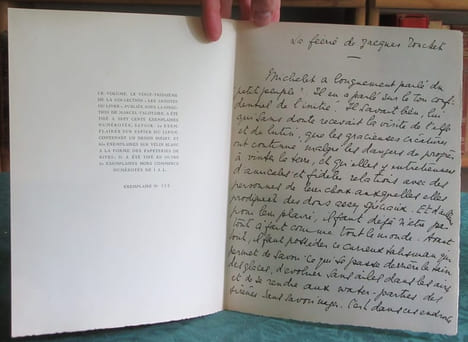 CE VOLUME, LE VINGT-TROISIÈME
DE LA COLLECTION « LES ARTISTES
DU LIVRE » PUBLIÉE SOUS LA DIREC-
TION DE MARCEL VALOTAIRE, A ÉTÉ
TIRÉ A SEPT CENTS EXEMPLAIRES
NUMÉROTÉS, SAVOIR : 50 EXEM-
PLAIRES SUR PAPIER DU JAPON
CONTENANT UN DESSIN INÉDIT, ET
650 EXEMPLAIRES SUR VÉLIN BLANC
A LA FORME DES PAPETERIES DE
RIVES. IL A ÉTÉ TIRÉ EN OUTRE
EXEMPLAIRES HORS COMMERCE
NUMÉROTÉS DE I A
EXEMPLAIRE N°
La féerie de Jacques Touchet
Michelet a longuement parlé du
petit peuple. Il en a parlé sur le ton confi-
dentiel de l'initié. Il savait bien, lui
qui sans doute recevait la visite de l'elfe
et du lutin, que les gracieuses créatures
ont coutume, malgré les dangers du progrès,
à visiter la terre, et qu'elles y entretiennent
d'amicales et fidèles relations avec des
personnes de leur choix auxquelles elles
prodiguent des dons assez spéciaux. Et d'abord
pour leur plaire, il faut déjà n'être pas
tout à fait comme tout le monde. Avant
tout, il faut posséder ce curieux talisman qui
permet de savoir ce qui se passe derrière le tain
des glaces, d'évoluer sans ailes dans les airs
et de se rendre aux water-parties des
sirènes sans savoir nager. C'est dans ces endroits